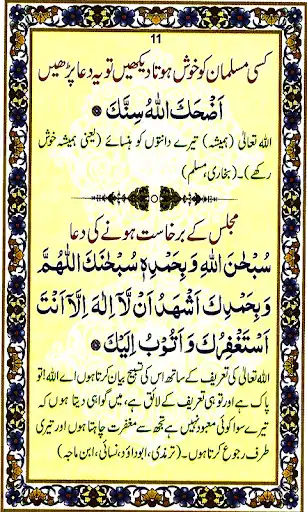 11
کسی مسلمان کو خوش ہوتا دیکھیں تو یہ دعا پڑھیں
اَضْحَكَ اللّٰهُ سِنَّكَ
اللہ تعالیٰ (ہمیشہ) تیرے دانتوں کو ہنسائے (یعنی ہمیشہ خوش
رکھے)۔ (بخاری، مسلم)
مجلس کے برخاست ہونے کی دعا
سُبْحٰنَ اللّٰهِ وَبِحَمْدِهٖ سُبْحٰنَكَ اللّٰهُمَّ
وَبِحَمْدِكَ اَشْهَدُ اَنْ لَّآ اِلٰهَ اِلَّآ اَنْتَ
اَسْتَغْفِرُكَ وَاَتُوْبُ اِلَيْكَ
اللہ تعالیٰ کی تعریف کے ساتھ اس کی تسبیح بیان کرتا ہوں اے اللہ! تو
پاک ہے اور تو ہی تعریف کے لائق ہے، میں گواہی دیتا ہوں کہ
تیرے سوا کوئی معبود نہیں ہے تجھ سے مغفرت چاہتا ہوں اور تیری
طرف رجوع کرتا ہوں۔ (ترمذی، ابوداؤد، نسائی، ابن ماجہ)